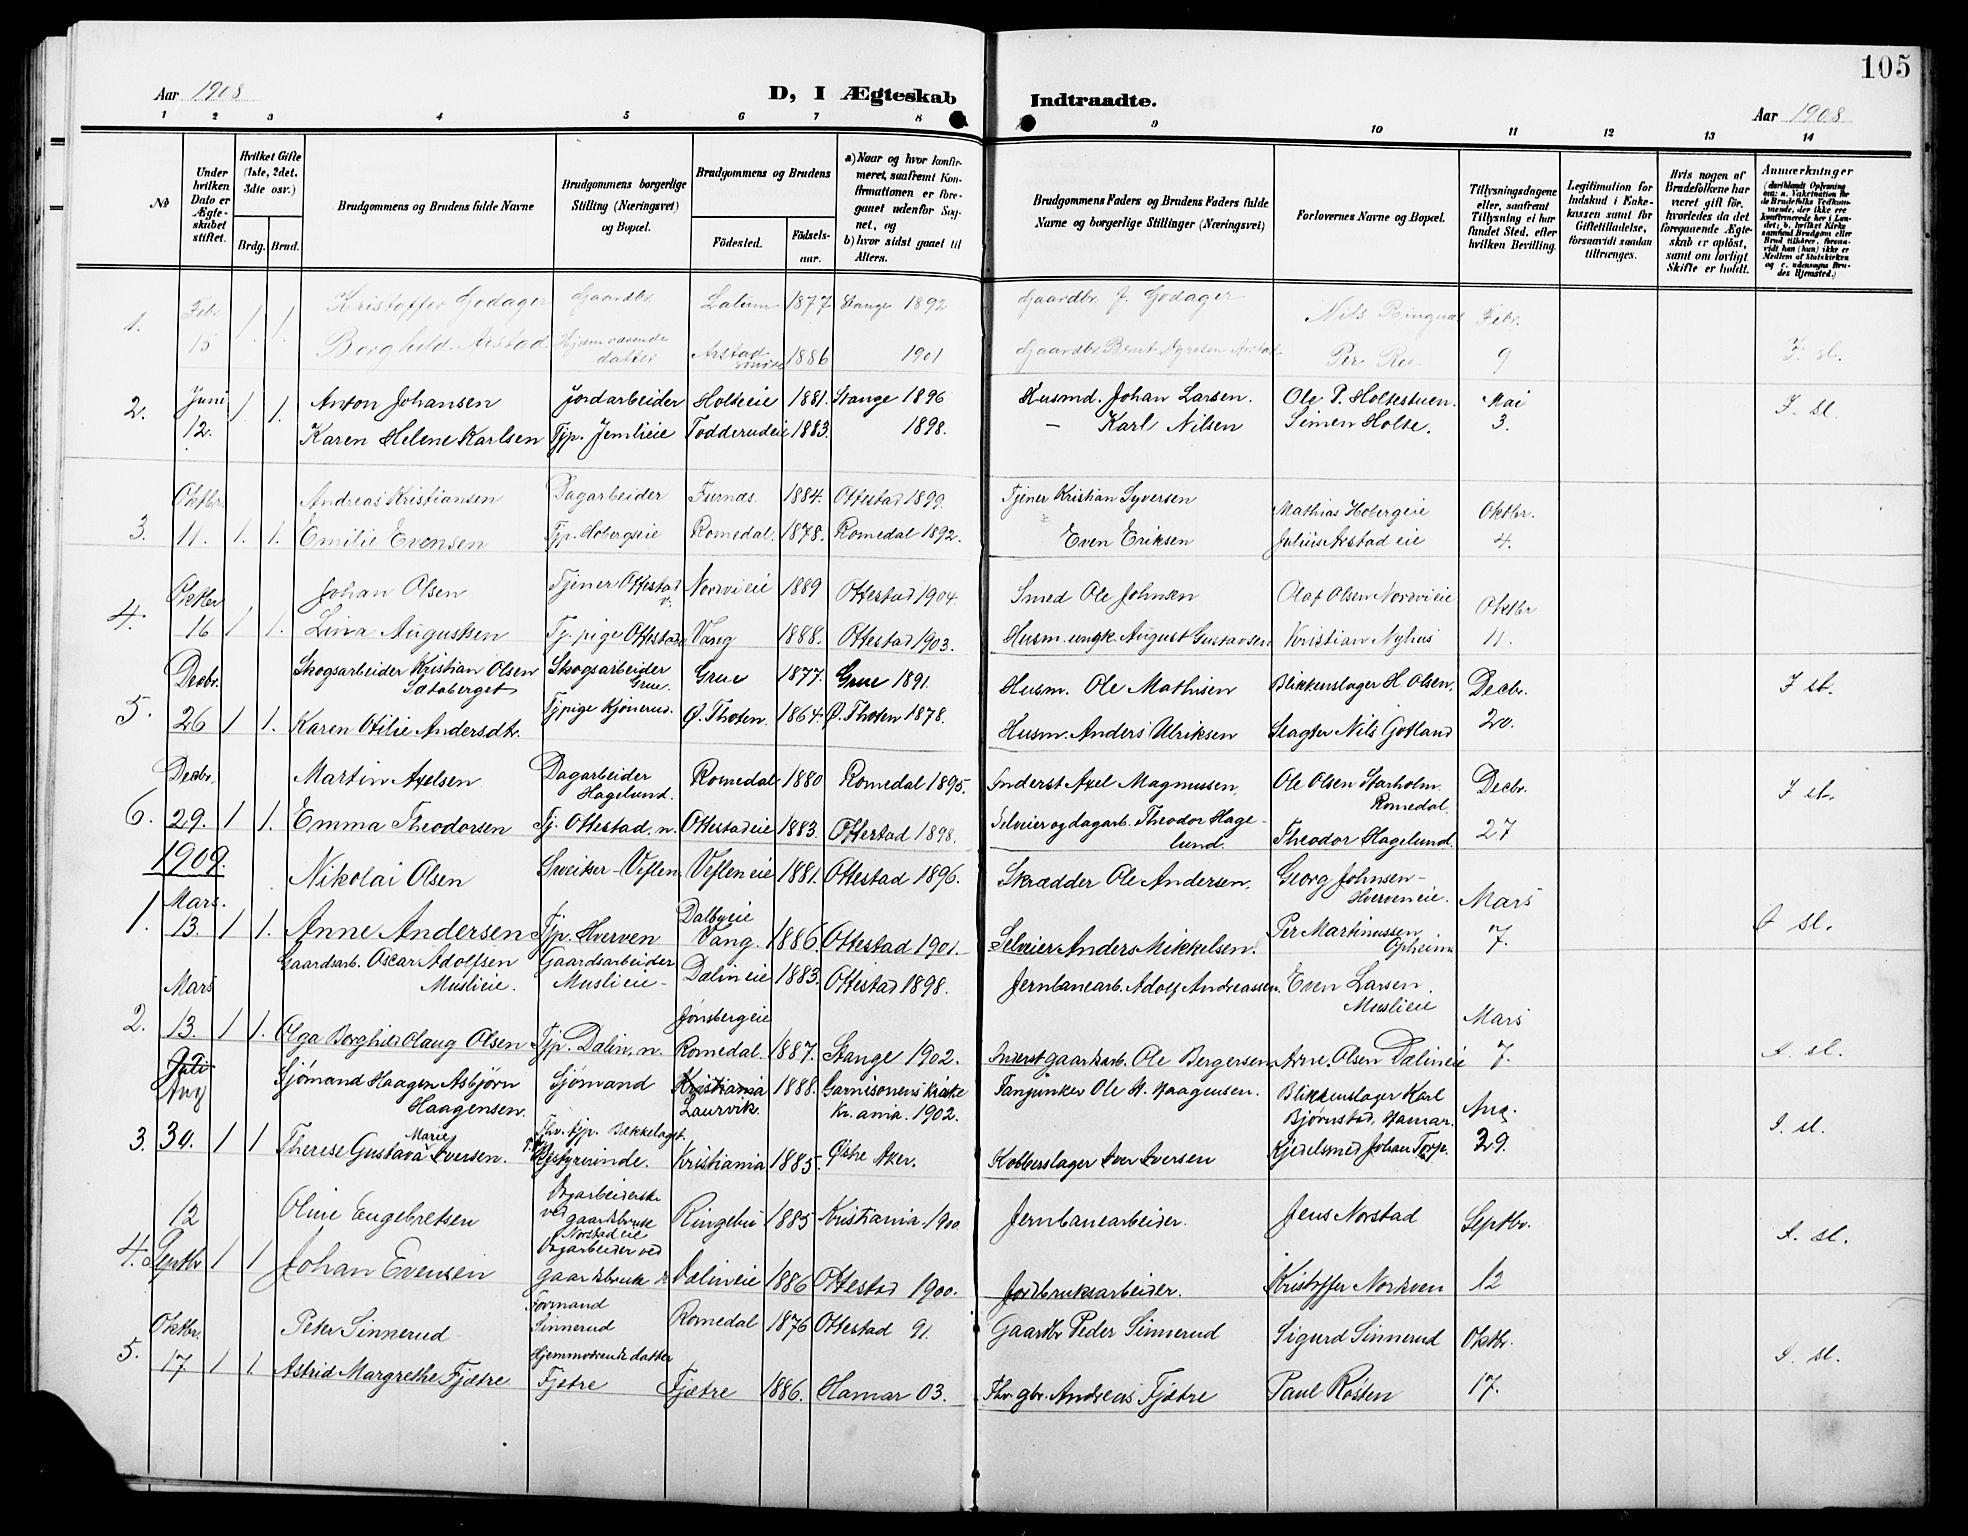 105
Aar 1908
D, I Ægteskab Indtraadte.
Aar 1908
1 2 3 4 5 6 7 8 9 10 11 12 13 14
No
Under hvilken Dato er Ægteskabet stiftet.
Hvilket Gifte (1ste, 2det, 3die osv.)
Brdg. Brud.
Brudgommens og Brudens fulde Navne
Brudgommens borgerlige Stilling (Næringsvei) og Bopæl.
Brudgommens og Brudens
Fødested.
Fødselsaar.
a) Naar og hvor konfirmeret, saafremt Konfirmationen er foregaaet udenfor Sognet, og
b) hvor sidst gaaet til Alters.
Brudgommens Faders og Brudens Faders fulde Navne og borgerlige Stillinger (Næringsvei)
Forlovernes Navne og Bopæl.
Tillysningsdagene eller, saafremt Tillysning ei har fundet Sted, efter hvilken Bevilling.
Legitimation for Indskud i Enkekassen samt for Giftetilladelse, forsaavidt saadan tiltrænges.
Hvis nogen af Brudefolkene har været gift før, hvorledes da det foregaaende Ægteskab er opløst, samt om lovligt Skifte er holdt.
Anmærkninger
Febr. Kristoffer Godager Gaardbr. Latum 1877 Stange 1892 Gaardbr. J. Godager Nils Ringnæs Febr.
1. 15 1. 1. Borghild Arstad Hjemmeværende datter Arstad søndre 1886 1901 Gaardbr. Arstad Per Roe 9 F. sl.
Juni Anton Johansen Jordarbeider Holteeie 1881. Stange 1896 Husmd. Johan Larsen. Ole P. Holtestuen. Mai
2. 12. 1. 1. Karen Helene Karlsen Tjp. Jemlieie Todderudeie 1883. 1898. — Karl Nilsen Simen Holte. 3. F. sl.
Oktbr. Andreas Kristiansen Dagarbeider Furnæs. 1884. Ottestad 1899. Tjener Kristian Syversen Mathias Hobergeie Oktbr.
3. 11. 1. 1. Emilie Evensen Tjp. Hobergseie Romedal. 1878. Romedal 1892. Even Eriksen Julius Arstadeie 4.
Oktbr Johan Olsen Tjener Ottestad v. Nordvieie 1889 Ottestad 1904. Smed Ole Johnsen Olaf Olsen Nordvieie Oktbr
4. 16 1 1. Lina Augustsen Tj. pige Ottestad Vang 1888. Ottestad 1903. Husm. ungk. August Gustavsen Kristian Nyhus 11.
Decbr. Skogsarbeider Kristian Olsen Sætaberget Skogsarbeider Grue. Grue 1877. Grue 1891. Husm. Ole Mathisen Blikkenslager H. Olsen. Decbr. F sl.
5. 26 1 1. Karen Otilie Andersdtr. Tjpige Kjønerud. Ø. Thoten. 1864. Ø. Thoten 1878. Husm. Anders Ulriksen Slagter Nils Gotland 20.
Decbr. Martin Axelsen Dagarbeider Hagelund. Romedal 1880 Romedal 1895. Inderst Axel Magnussen. Ole Olsen Starholm Romedal. Decbr. F sl.
6. 29. 1 1. Emma Theodorsen Tj. Ottestad, n. Ottestadeie 1883. Ottestad 1898. Selveier og dagarb. Theodor Hagelund. Theodor Hagelund. 27
1909.
Mars. Nikolai Olsen Sveitser - Veflen Vefleneie 1881. Ottestad 1896. Skrædder Ole Andersen. Georg Johnsen - Hverveneie. Mars
1. 13. 1 1. Anne Andersen Tjp. Hverven Dalbyeie Vang. 1886. Ottestad 1901. Selveier Anders Mikkelsen. Per Martinussen Opheim 7. sl.
Mars Gaardsarb. Oscar Adolfsen Muslieie. Gaardsarbeider Muslieie - Dælineie 1883. Ottestad 1898. Jernbanearb. Adolf Andreassen. Even Larsen. Muslieie Mars
2. 13. 1 1. Olga Borghild Olaug Olsen Tjp. Dælin, n. Jønsbergeie Romedal. 1887. Stange 1902. Inderst gaardsarb. Ole Bergersen Arne Olsen Dælineie 7. A. sl.
Juli Aug Sjømand Haagen Asbjørn Haagensen. Sjømand Kristiania Laurvik. 1888. Garnisonens Kirke Kr.ania. 1902. Fanjunker Ole H. Haagensen. Blikkenslager Karl Bjørnstad, Hamar. Aug.
3. 30. 1 1 Therese Gustava Marie Iversen. Thv. tjp. Bækkelaget. Bestyrerinde. Kristiania 1885. Østre Aker. Kobberslager Iver Iversen Kjedelsmed Johan Torp. 29. S. sl.
12 Oline Engebretsen Dagarbeiderske ved gaardsbruk Norstadeie Ringebu 1885 Kristiania 1900 Jernbanearbeider. Jens Norstad Septbr. A. sl.
4. Septbr 1 1 Johan Evensen Dagarbeider ved gaardsbruk Dælineie 1886 Ottestad 1900. Jordbruksarbeider. Kristoffer Nordsven 12
Oktbr. Peter Sinnerud Formand Sinnerud Romedal 1876 Ottestad 91. Gaardbr Peder Sinnerud Sigurd Sinnerud Oktbr.
5. 17. 1 1. Astrid Margrethe Fjætre Hjemmeværende datter Fjetre Fjætre 1886. Hamar 03. Fhv. gbr. Andreas Fjætre Paul Røsten 17. S. sl.